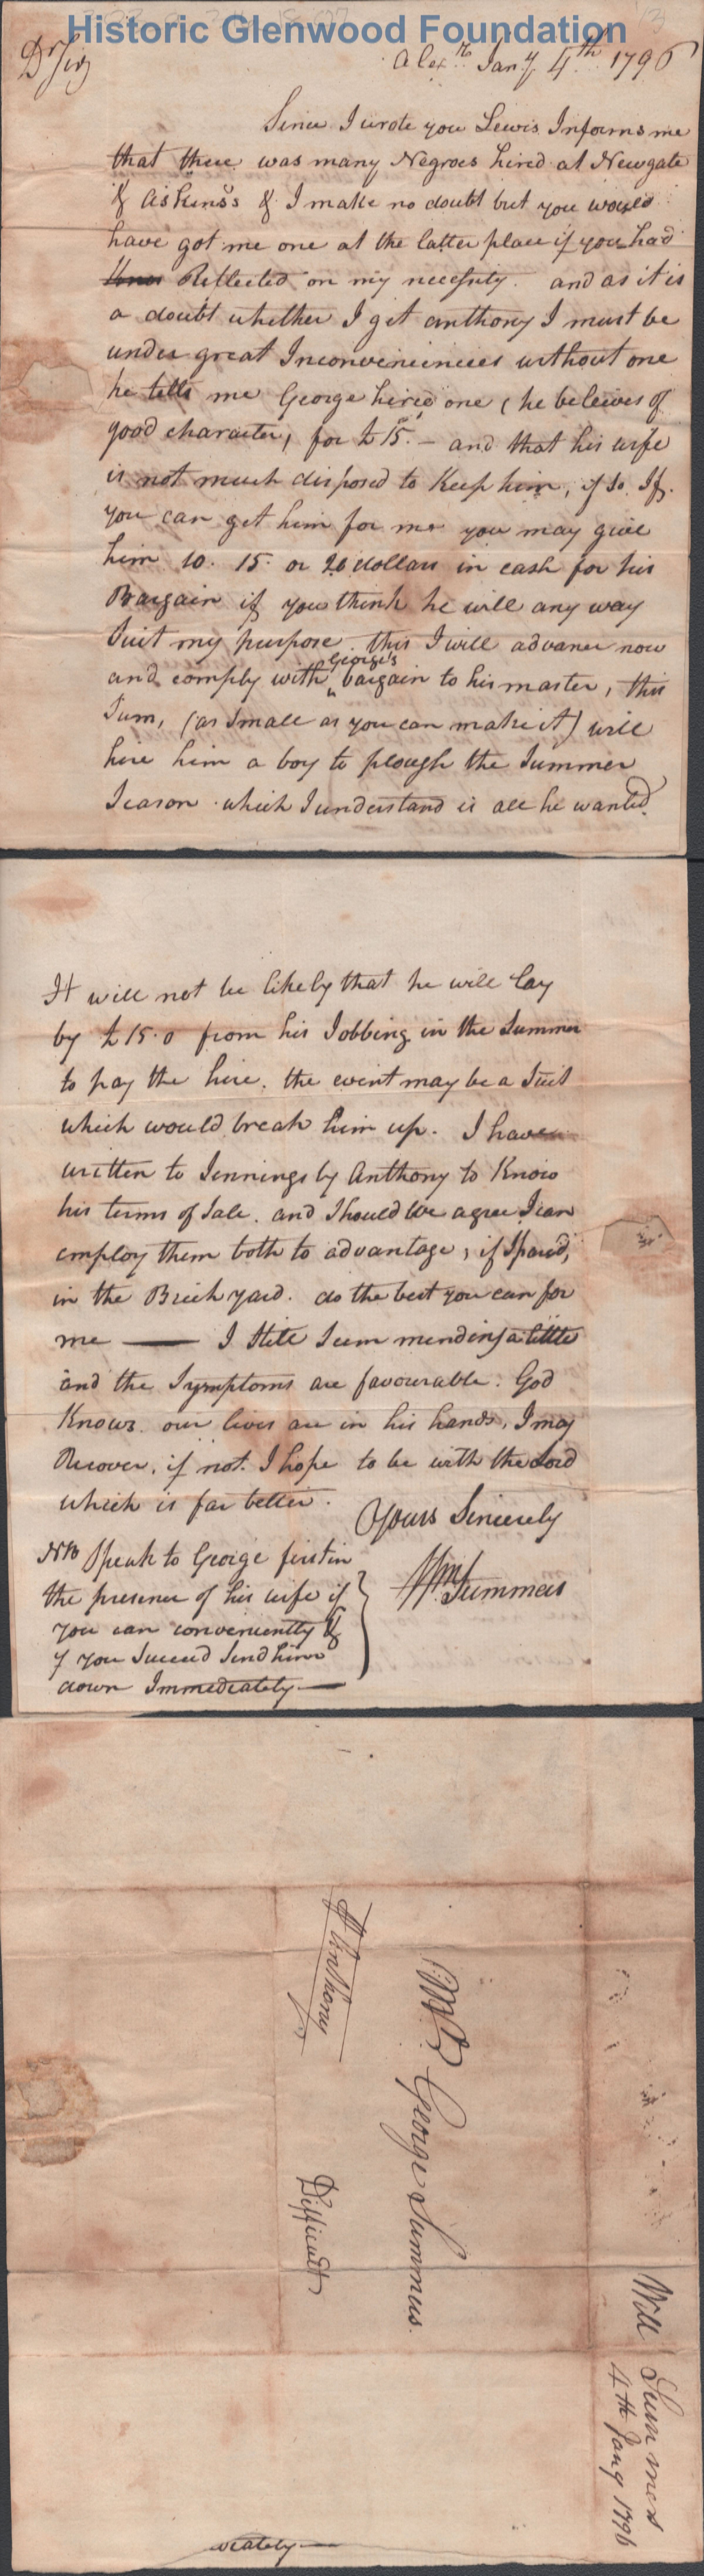 Historic Glenwood Foundation
Dr Sir
Alexa. Jany 4th 1796
Since I wrote you Lewis Informs me
that there was many Negroes hired at Newgate
& Askins's & I make no doubt but you would
have got me one at the latter place if you had
Reflected on my necessity. and as it is
a doubt whether I get anthony I must be
under great Inconveniences without one
he tells me George hired one (he beleives of
good character) for £15.– and that his wife
is not much disposed to Keep him, if so If
you can get him for me you may give
him 10. 15. or 20 dollars in cash for his
Bargain if you think he will any way
Suit my purpose. this I will advance now
and comply with George's bargain to his master, this
Sum, (as Small as you can make it) will
hire him a boy to plough the Summer
Season. which I understand is all he wanted
It will not be likely that he will lay
by £15.0 from his Jobbing in the Summer
to pay the hire. the event may be a Suit
which would break him up. I have
written to Jennings by Anthony to Know
his terms of Sale. and Should We agree I can
employ them both to advantage, if Spared,
in the Brick yard. do the best you can for
me — I Still Seem mending a little
and the Symptoms are favourable. God
Knows our lives are in his hands, I may
Recover, if not. I hope to be with the Lord
which is far better.
Yours Sincerely
Wm Summers
NB Speak to George first in
the presence of his wife if
you can conveniently &
if you Succeed Send him
down Immediately —
Mr George Summers
Anthony
Difficult
Will Summers
4th Jany 1796
diately —